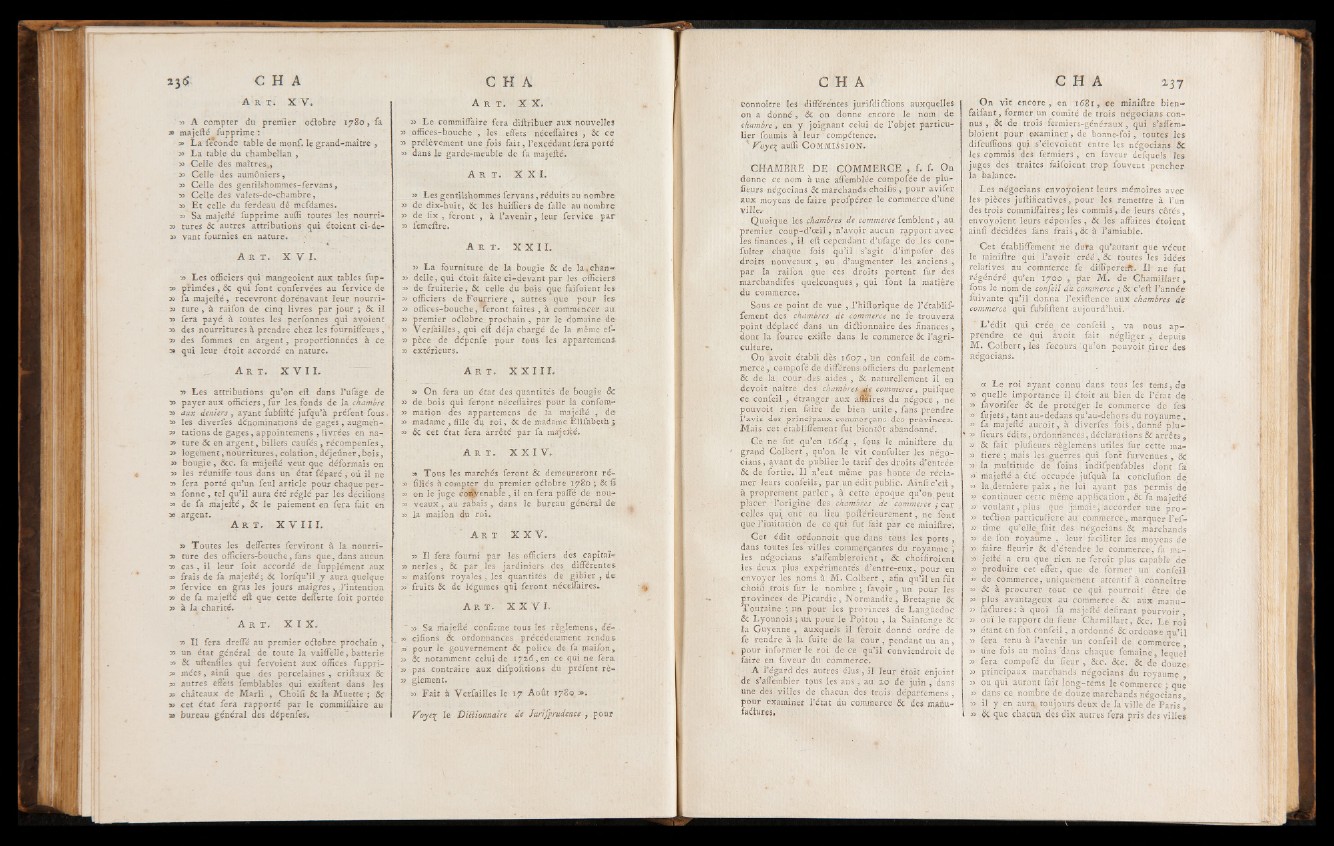 236 CHA
ART. XV.
» A compter du premier octobre 1780, sa
» majesté supprime :
» La seconde table de mons. le grand-maître ,
» La table du chambellan ,
» Celle des maîtres,
» Celle des aumôniers,
» Celle des gentilshommes-servans,
» Celle des valets-de-chambre,
» Et celle du serdeau de mesdames.
» Sa majesté supprime aussi toutes les nourri-
» tures & autres attributions qui étoient ci-de-
» vant fournies en nature.
ART. XVI.
» Les officiers qui mangeoient aux tables sup-
» primées, & qui sont conservées au service de
» sa majesté, recevront dorénavant leur nourri-
» ture, à raison de cinq livres par jour ; & il
» sera payé à toutes les personnes qui avoient
» des nourritures à prendre chez les fournisseurs,
» des sommes en argent, proportionnées à ce
» qui leur étoit accordé en nature.
ART. XVII.
» Les attributions qu'on est dans l'usage de
» payer aux officiers, sur les fonds de la chambre
» aux deniers, ayant subsisté jusqu'à présent sous
» les diverses dénominations de gages, augmen-
» tations de gages, appointemens, livrées en na-
» ture & en argent, billets causés, récompenses,
» logement, nourritures, colation, déjeûner, bois,
» bougie, &c. sa majesté veut que désormais on
» les réunisse tous dans un état séparé, où il ne
» sera porté qu'un seul article pour chaque per-
» sonne, tel qu'il aura été réglé par les décisions
» de sa majesté, & le paiement en sera fait en
» argent.
ART. XVIII.
» Toutes les dessertes serviront à la nourri-
» ture des officiers-bouche, sans que, dans aucun
» cas, il leur soit accordé de supplément aux
» frais de sa majesté ; & lorsqu'il y aura quelque
» service en gras les jours maigres, l'intention
» de sa majesté est que cette desserte soit portée
» à la charité.
ART. XIX.
» Il sera dressé au premier octobre prochain ,
» un état général de toute la vaisselle, batterie
» & ustensiles qui servoient aux offices suppri-
» mées, ainsi que des porcelaines, cristaux &
» autres effets semblables qui existent dans les
» châteaux de Marli, Choisi & la Muette ; &
» cet état sera rapporté par le commissaire au
» bureau général des dépenses.
CHA
ART. XX.
» Le commissaire sera distribuer aux nouvelles
» offices-bouche , les effets nécessaires , & ce
» prélèvement une fois fait, l'excédant sera porté
» dans le garde-meuble de sa majesté.
ART. XXI.
» Les gentilshommes servans, réduits au nombre
» de dix-huit, & les huissiers de salle au nombre
» de six, seront, à l'avenir, leur service par
» semestre.
ART. XXII.
» La fourniture de la bougie & de la chan-
» delle, qui étoit faite ci-devant par les officiers
» de fruiterie, & celle du bois que faisoient les
» officiers de Fourriere , autres que pour les
» offices-bouche, seront faites, à commencer au
» premier octobre prochain, par le domaine de
» Versailles, qui est déja chargé de la même es-
» pèce de dépense pour tous les appartemens
» extérieurs.
ART. XXIII.
» On sera un état des quantités de bougie &
» de bois qui seront nécessaires pour la consom-
» mation des appartemens de sa majesté , de
» madame, fille du roi, & de madame Elisabeth ;
» & cet état sera arrêté par sa majesté.
ART. XXIV.
» Tous les marchés seront & demeureront ré-
» siliés à compter du premier octobre 1780 ; & si
» on le juge convenable, il en sera passé de nou-
» veaux, au rabais, dans le bureau général de
» la maison du roi.
ART XXV.
» Il sera fourni par les officiers des capitai-
» neries, & par les jardiniers des différentes
» maisons royales, les quantités de gibier, de
» fruits & de légumes qui seront nécessaires.
ART. XXVI.
» Sa majesté confirme tous les règlemens, dé-
» cisions & ordonnances précédemment rendus
» pour le gouvernement & police de sa maison,
» & notamment celui de 1726, en ce qui ne sera
» pas contraire aux dispositions du présent ré-
» glement.
» Fait à Versailles le 17 Août 1780 ».
Voyez le Dictionnaire de Jurisprudence, pour
CHA
connoître les différentes jurisdictions auxquelles
on a donné, & on donne encore le nom de
chambre, en y joignant celui de l'objet particu-
lier soumis à leur compétence.
Voyez aussi COMMISSION.
CHAMBRE DE COMMERCE, s. f. On
donne ce nom à une assemblée composée de plu-
sieurs négocians & marchands choisis, pour aviser
aux moyens de faire prospérer le commerce d'une
ville.
Quoique les chambres de commerce semblent, au
premier coup-d'œil, n'avoir aucun rapport avec
les finances, il est cependant d'usage de les con-
sulter chaque fois qu'il s'agit d'imposer des
droits nouveaux, ou d'augmenter les anciens,
par la raison que ces droits portent sur des
marchandises quelconques, qui font la matière
du commerce.
Sous ce point de vue, l'historique de l'établis-
sement des chambres de commerce ne se trouvera
point déplacé dans un dictionnaire des finances,
dont la source existe dans le commerce & l'agri-
culture.
On avoit établi dès 1607, un conseil de com-
merce, composé de différens officiers du parlement
& de la cour des aides, & naturellement il en
devoit naître des chambres de commerce, puisque
ce conseil, étranger aux affaires du négoce, ne
pouvoit rien faire de bien utile, sans prendre
l'avis des principaux commerçans des provinces.
Mais cet établissement fut bientôt abandonné.
Ce ne fut qu'en 1664, sous le ministere du
grand Colbert, qu'on le vit consulter les négo-
cians, avant de publier le tarif des droits d'entrée
& de sortie. Il n'eut même pas honte de récla-
mer leurs conseils, par un édit public. Ainsi c'est,
à proprement parler, à cette époque qu'on peut
placer l'origine des chambres de commerce ; car
celles qui ont eu lieu postérieurement, ne sont
que l'imitation de ce qui fut fait par ce ministre.
Cet édit ordonnoit que dans tous les ports,
dans toutes les villes commerçantes du royaume,
les négocians s'assembleroient, & choisiroient
les deux plus expérimentés d'entre-eux, pour en
envoyer les noms à M. Colbert, afin qu'il en fût
choisi trois sur le nombre ; savoir, un pour les
provinces de Picardie, Normandie, Bretagne &
Touraine ; un pour les provinces de Languedoc
& Lyonnois ; un pour le Poitou, la Saintonge &
la Guyenne, auxquels il seroit donné ordre de
se rendre à la suite de la cour, pendant un an,
pour informer le roi de ce qu'il conviendroit de
faire en faveur du commerce.
A l'égard des autres élus, il leur étoit enjoint
de s'assembler tous les ans, au 20 de juin, dans
une des villes de chacun des trois départemens,
pour examiner l'état du commerce & des manu-
factures.
CHA 237
On vit encore, en 1681, ce ministre bien-
faisant, former un comité de trois négocians con-
nus, & de trois fermiers-généraux, qui s'assem-
bloient pour examiner, de bonne-foi, toutes les
discussions qui s'élevoient entre les négocians &
les commis des fermiers, en faveur desquels les
juges des traites faisoient trop souvent pencher
la balance.
Les négocians envoyoient leurs mémoires avec
les pièces justificatives, pour les remettre à l'un
des trois commissaires ; les commis, de leurs côtés,
envoyoient leurs réponses, & les affaires étoient
ainsi décidées sans frais, & à l'amiable.
Cet établissement ne dura qu'autant que vécut
le ministre qui l'avoit créé, & toutes les idées
relatives au commerce se dissiperent. Il ne fut
régénéré qu'en 1700, par M. de Chamillart,
sous le nom de conseil de commerce ; & c'est l'année
suivante qu'il donna l'existence aux chambres de
commerce qui subsistent aujourd'hui.
L'édit qui crée ce conseil, va nous ap-
prendre ce qui avoit fait négliger, depuis
M. Colbert, les secours qu'on pouvoit tirer des
négocians.
« Le roi ayant connu dans tous les tems, de
» quelle importance il étoit au bien de l'état de
» favoriser & de protéger le commerce de ses
» sujets, tant au-dedans qu'au-dehors du royaume,
» sa majesté auroit, à diverses fois, donné plu-
» sieurs édits, ordonnances, déclarations & arrêts,
» & fait plusieurs réglemens utiles sur cette ma-
» tiere ; mais les guerres qui sont survenues, &
» la multitude de soins indispensables dont sa
» majesté a été occupée jusquà la conclusion de
» la derniere paix, ne lui ayant pas permis de
» continuer cette même application, & sa majesté
» voulant, plus que jamais, accorder une pro-
» tection particuliere au commerce, marquer l'es-
» time qu'elle fait des négocians & marchands
» de son royaume, leur faciliter les moyens de
» faire fleurir & d'étendre le commerce, sa ma-
» jesté a cru que rien ne seroit plus capable de
» produire cet effet, que de former un conseil
» de commerce, uniquement attentif à connoître
» & à procurer tout ce qui pourroit être de
» plus avantageux au commerce & aux manu-
» factures : à quoi sa majesté desirant pourvoir,
» oui le rapport du sieur Chamillart, &c. Le roi
» étant en son conseil, a ordonné & ordonne qu'il
» sera tenu à l'avenir un conseil de commerce,
» une fois au moins dans chaque semaine, lequel
» sera composé du sieur, &c. &c. & de douze
» principaux marchands négocians du royaume,
» ou qui auront fait long-tems le commerce ; que
» dans ce nombre de douze marchands négocians,
» il y en aura toujours deux de la ville de Paris,
» & que chacun des dix autres sera pris des villes